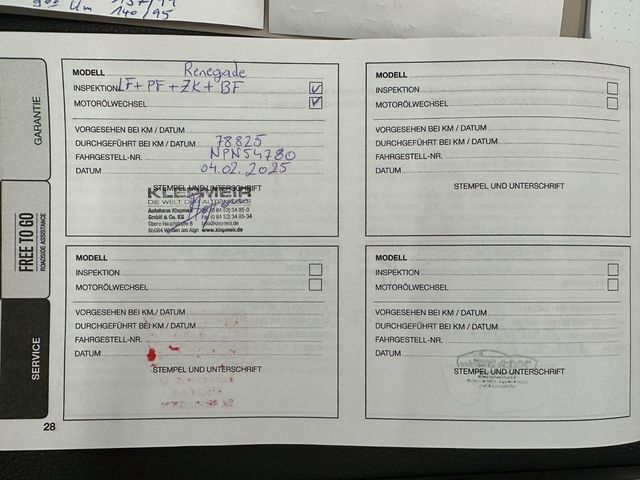 140/95
GARANTIE
FREE TO GO
ROADSIDE ASSISTANCE
SERVICE
MODELL Renegade
INSPEKTION LF + PF + ZK + BF
MOTORÖLWECHSEL
VORGESEHEN BEI KM / DATUM
DURCHGEFÜHRT BEI KM / DATUM 78825
FAHRGESTELL-NR. NPN54780
DATUM 04.02.2025
STEMPEL UND UNTERSCHRIFT
KLEPMEIR
DIE WELT DER AUTOMOBILE
Autohaus Klepmeir
GmbH & Co. KG
Obere Hauptstraße 8
Fon (0 84 53) 34 85-0
Fax (0 84 53) 34 85-34
info@klepmeir.de
www.klepmeir.de
MODELL
INSPEKTION
MOTORÖLWECHSEL
VORGESEHEN BEI KM / DATUM
DURCHGEFÜHRT BEI KM / DATUM
FAHRGESTELL-NR.
DATUM
STEMPEL UND UNTERSCHRIFT
MODELL
INSPEKTION
MOTORÖLWECHSEL
VORGESEHEN BEI KM / DATUM
DURCHGEFÜHRT BEI KM / DATUM
FAHRGESTELL-NR.
DATUM
STEMPEL UND UNTERSCHRIFT
MODELL
INSPEKTION
MOTORÖLWECHSEL
VORGESEHEN BEI KM / DATUM
DURCHGEFÜHRT BEI KM / DATUM
FAHRGESTELL-NR.
DATUM
STEMPEL UND UNTERSCHRIFT
28